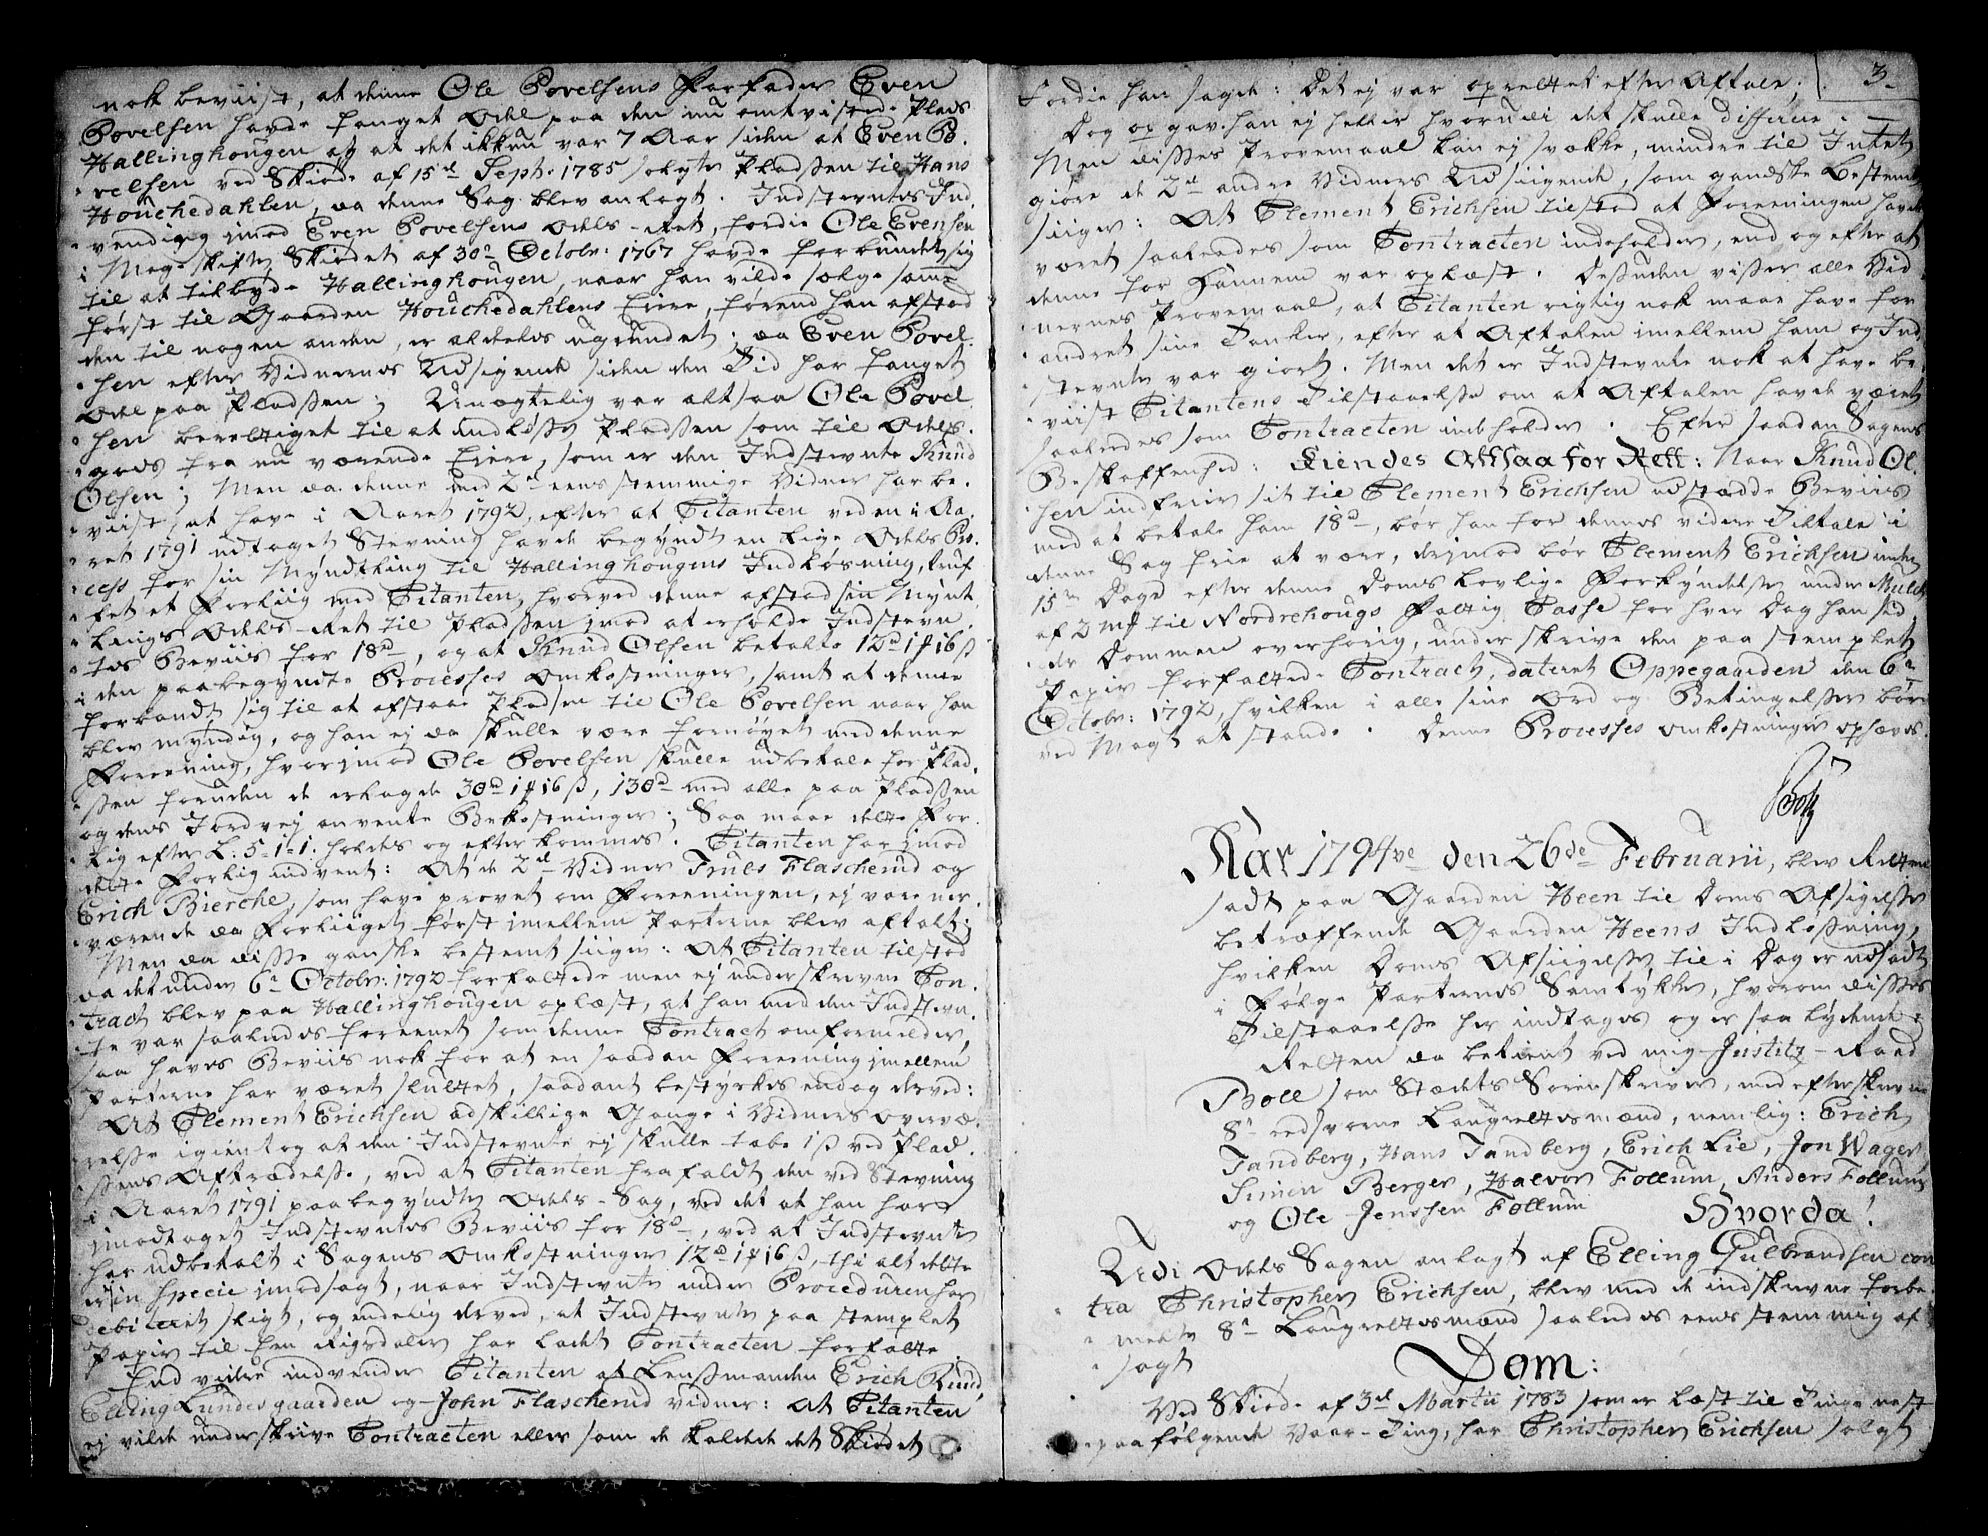 nok beviist, at denne Ole Povelsens Farfader Even
Povelsen havde fanget Odel paa den nu omtvistede Plads
Hallinghougen og at det ikkun var 7 Aar siden at Even Po¬
velsen ved Skiøde af 15de Septr. 1785 solgte Pladsen til Hans
Houchedahlen, da denne Sag blev anlagt. Indstevntes Ind¬
vending imod Even Povelsens Odels-Ret, fordie Ole Evensen
i Mageskifte Skiødet af 30te Octobr. 1767 havde forbundet sig
til at tilbyde Hallinghougen, naar han vilde sælge samme
først til Gaarden Houchedahlens Eiere, førend han afstod
den til nogen anden, er aldeles ugrundet; da Even Povel¬
sen efter Vidnernes Udsigende siden den Tid har fanget
Odel paa Pladsen; Unægtelig var altsaa Ole Povel¬
sen berettiget til at indløse Pladsen som til Odels¬
gods fra nu værende Eiere, som er den Indstevnte Knud
Olsen; Men da denne med 2de eenstemmige Vidner har be¬
viist, at have i Aaret 1792, efter at Citanten ved en i Aa¬
ret 1791 udtaget Stevning havde begyndt en lige Odels Pro¬
cess for sin Myndtling til Hallinghougens Indløsning, truf¬
fet et Forliig med Citanten, hvorved denne afstod sin Mynt¬
lings Odels-Ret til Pladsen imod at erholde Indstevn¬
tes Beviis for 18rd, og at Knud Olsen betalte 12rd 1 ort 16 s
i den paabegyndte Processes Omkostninger, samt at denne
forbandt sig til at afstaae Pladsen til Ole Povelsen naar han
blev myndig, og han ej da skulle være fornøyet med denne
Foreening, hvorimod Ole Povelsen skulle udbetale for Plad¬
sen foruden de erlagde 30rd 1 ort 16 s, 130rd med alle paa Pladsen
og dens Jordvej anvente Bekostninger; Saa maae dette For¬
lig efter L: 5-1-1. holdes og efterkommes. Citanten har imod
dette Forlig indvent: At de 2de Vidner Truls Flascherud og
Erich Bierche, som have prøvet om Foreeningen, ej vare nær¬
værende da Forliiget først imellem Parterne blev aftalt;
Men da disse ganske bestemt siiger: At Citanten tilstod
da det under 6te Octobr: 1792 forfattede men ej underskrevne Con¬
tract blev paa Hallinghougen oplæst, at han med den Indstevn¬
te var saaledes foreenet som denne Contract omformelder,
saa haves Beviis nok for at en saadan Foreening imellem
Parterne har været sluttet, saadant bestyrkes endog derved:
At Clement Erichsen adskillige Gange i Vidners overvæ¬
relse igientog at den Indstevnte ej skulle tabe 1 s ved Plad¬
sens Aftrædelse, ved at Citanten frafaldt den ved Stevning
i Aaret 1791 paabegyndte Odels-Sag, ved det at han har
imodtaget Indstevntes Beviis for 18rd, ved at Indstevnte
har udbetalt i Sagens Omkostninger 12rd 1 ort 16 s, thi alt dette
er in specie imodsagt, naar Indstevnte under Proceduren har
debiteret sligt, og endelig derved, at Indstevnte paa stemplet
Papiir til een Rigsdaler har ladet Contracten forfatte.
End videre indvender Citanten at Lensmanden Erich Ruud,
Elling Lundesgaarden og John Flascherud vidner: At Citanten
ej vilde underskrive Contracten eller som de kaldede det Skiødet
3.
Fordie han sagde: Det ej var oprettet efter Aftale;
Dog opgav han ej heller hvorudi det skulle differere.
Men disses Provemaal kan ej svække, mindre til Intet
giøre de 2de andre Vidners Udsigende, som gandske bestemt
siiger: At Clement Erichsen tilstod at Foreeningen havde
været saaledes som Contracten indeholder, end og efter at
denne for Hannem var oplæst. Desuden viser alle Vid¬
nernes Provemaal, at Citanten rigtig nok maae have for¬
andret sine Tanker, efter at Aftalen imellem ham og Ind¬
stevnte var giort. Men det er Indstevnte nok at have be¬
viist Citantens Tilstaaelse om at Aftalen havde været
saaledes som Contracten indeholder. Efter saadan Sagens
Beskaffenhed: Kiendes Altsaa for Rett: Naar Knud Ol¬
sen indfrier sit til Clement Erichsen udstædde Beviis
med at betale ham 18rd, bør han for dennes videre Tiltale i
denne Sag frie at være, derimod bør Clement Erichsen inden
15ten Dage efter denne Doms lovlige Forkyndelse under Mulct
af 2 mk til Nordrehougs Fattig Casse for hver Dag han sid¬
der Dommen overhørig, underskrive den paa stemplet
Papiir forfattede Contract, dateret Oppegaarden den 6te
Octobr: 1792, hvilken i alle sine Ord og Betingelser bør
ved Magt at stande. Denne Processes Omkostninger ophæves.
Boll
Aar 1794ve den 26de Februarii, blev Retten
sadt paa Gaarden Heen til Doms Afsigelse
betræffende Gaarden Heens Indløsning,
hvilken Doms Afsiigelse til i Dag er udsadt
i Følge Parternes Samtykke, hvorom disses
Tilstaaelse her indtages og er saa lydende:
Retten da betient ved mig Justitz-Raad
Boll som Stædets Sorenskriver, med efterskrevne
8te eedsvorne Laugrettesmænd, nemlig: Erich
Tandberg, Hans Tandberg, Erich Lie, Jon Wager,
Simen Berger, Halvor Follum, Anders Follum
og Ole Jenssen Follum Hvorda!
Udi Odels Sagen anlagt af Elling Gulbrandsen con¬
tra Christopher Erichsen, blev med de indskrevne forbe¬
meldte 8te Laugrettesmænd saaledes eenstemmig af¬
sagt
Dom:
Ved Skiøde af 3de Martii 1783 som er læst til Tinge nest
paafølgende Vaar-Ting, har Christopher Erichsen solgt